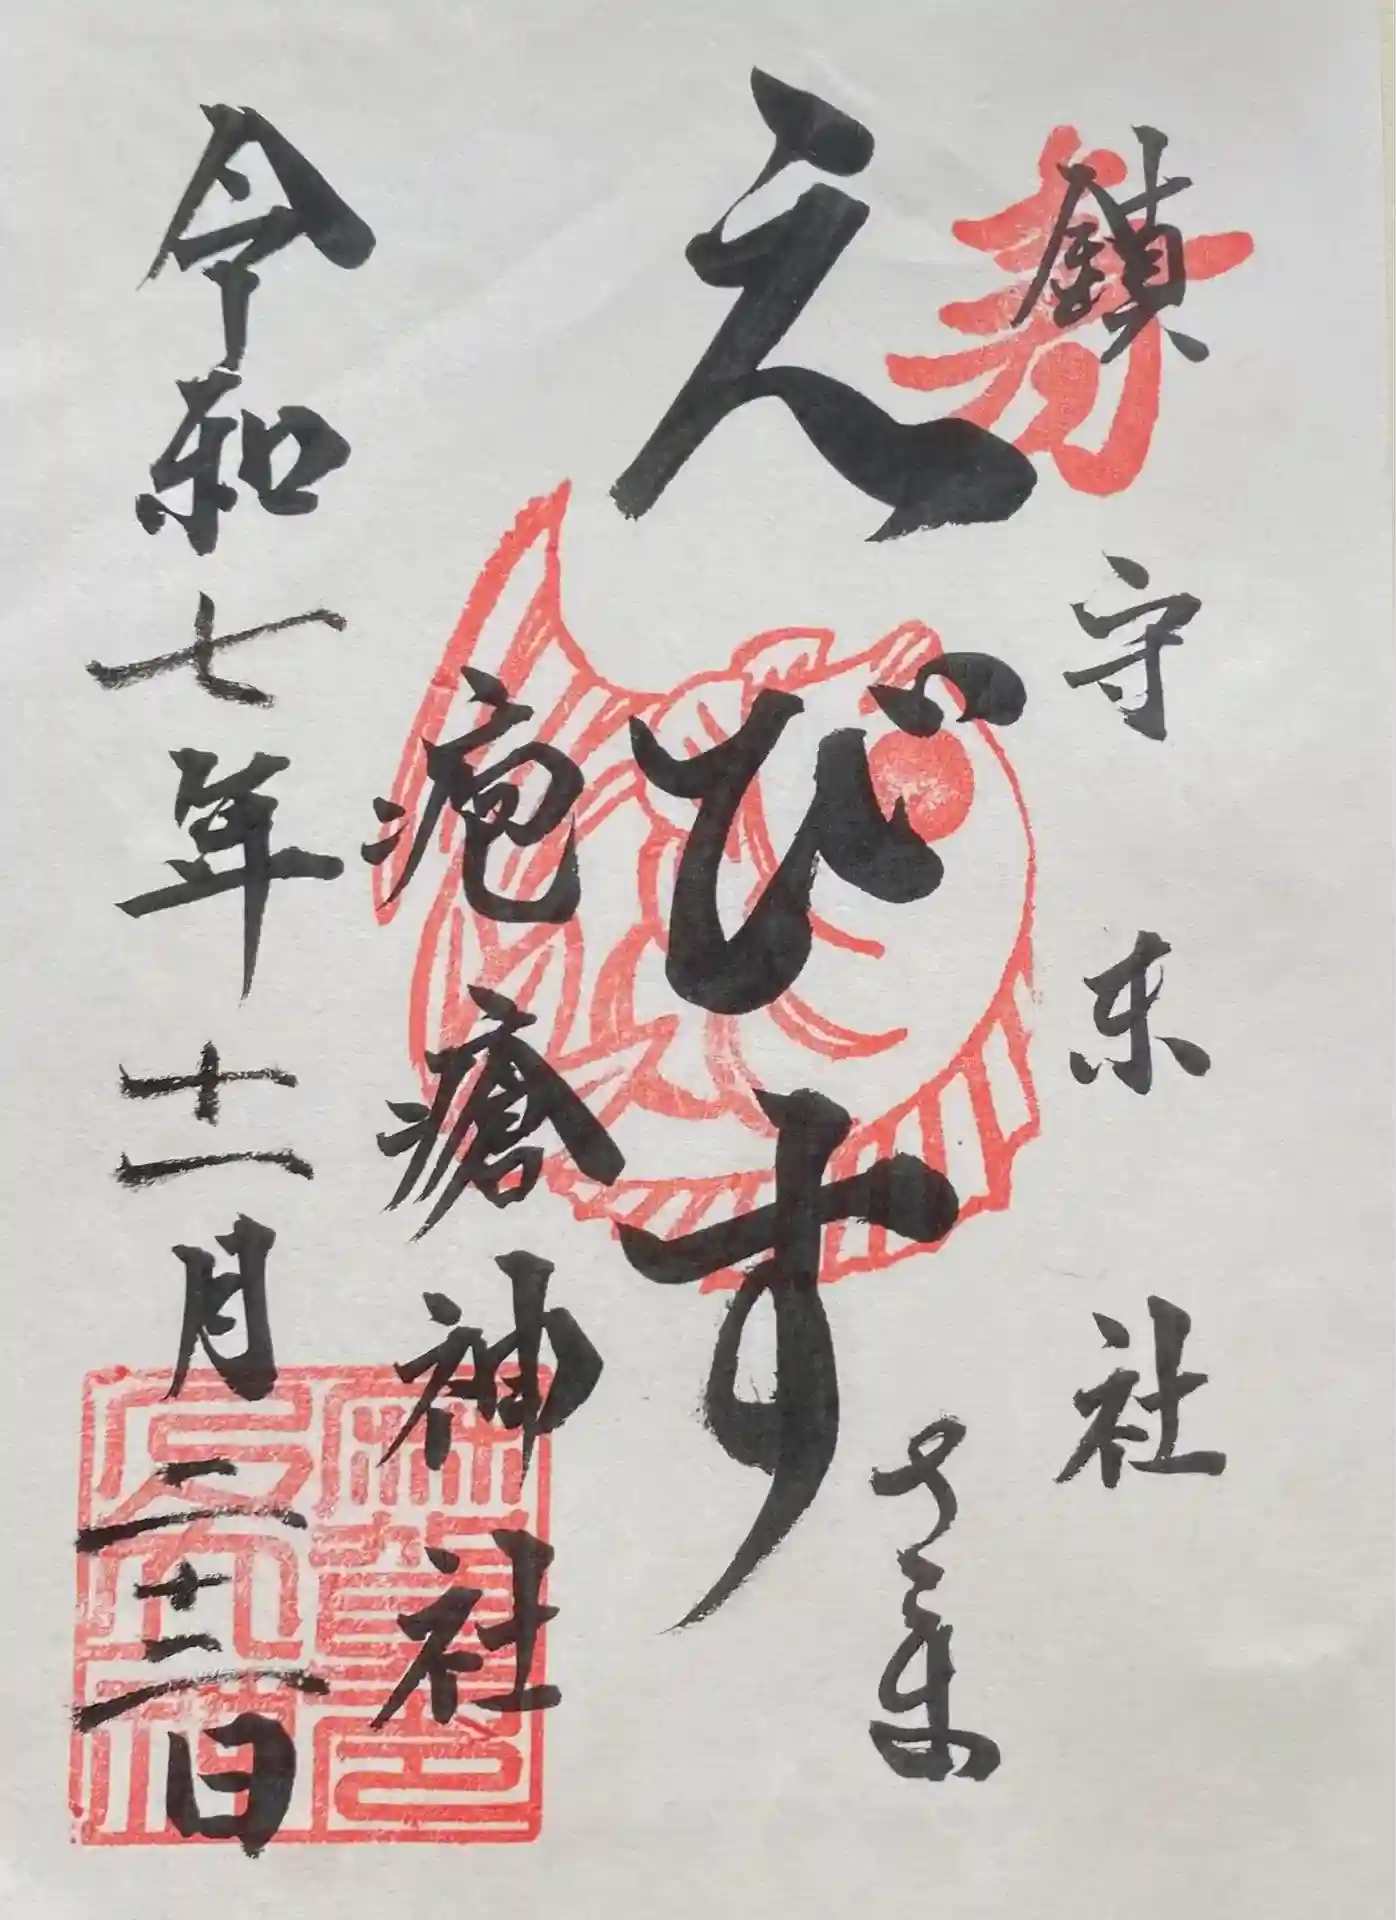 寿
鎮守末社
えびすさま
疱瘡神社
令和七年十一月二十二日